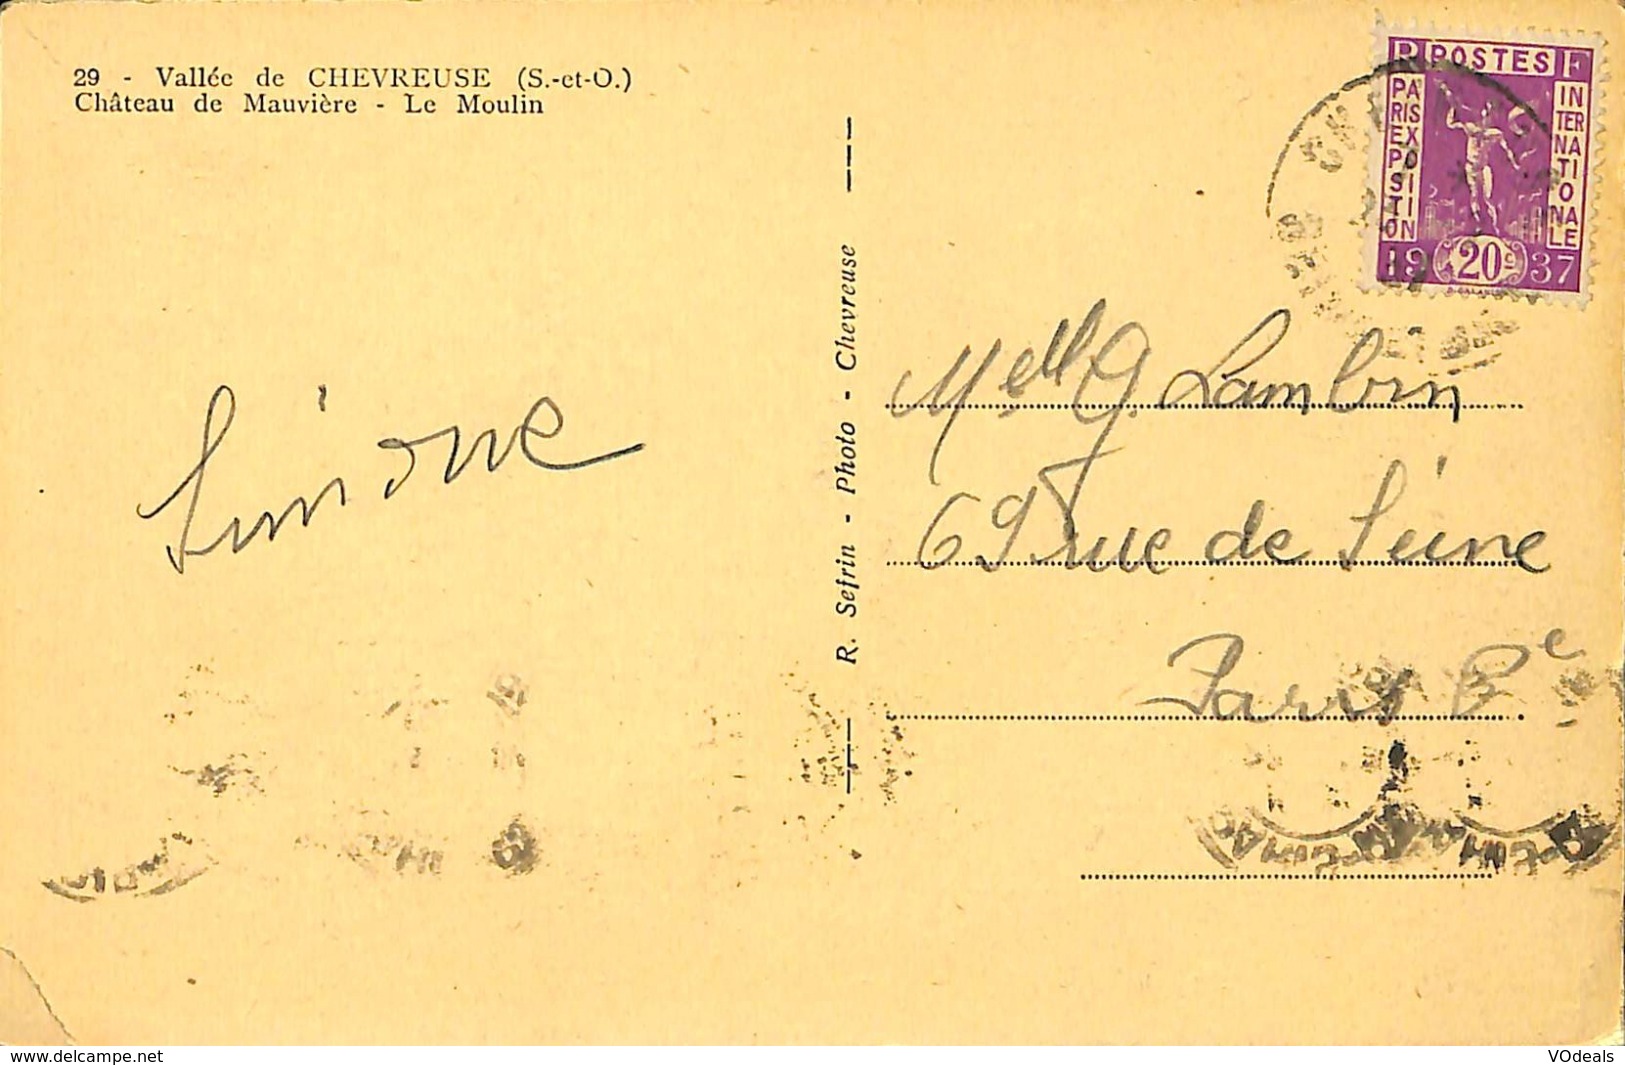 29 - Vallée de CHEVREUSE (S.-et-O.)
Château de Mauvière - Le Moulin
RF POSTES
PARIS EXPOSITION
INTERNATIONALE
1937
20c
R. Sefrin - Photo - Chevreuse
Simone
Melle G. Lambin
69 rue de Seine
Paris 6e
www.delcampe.net
VOdeals